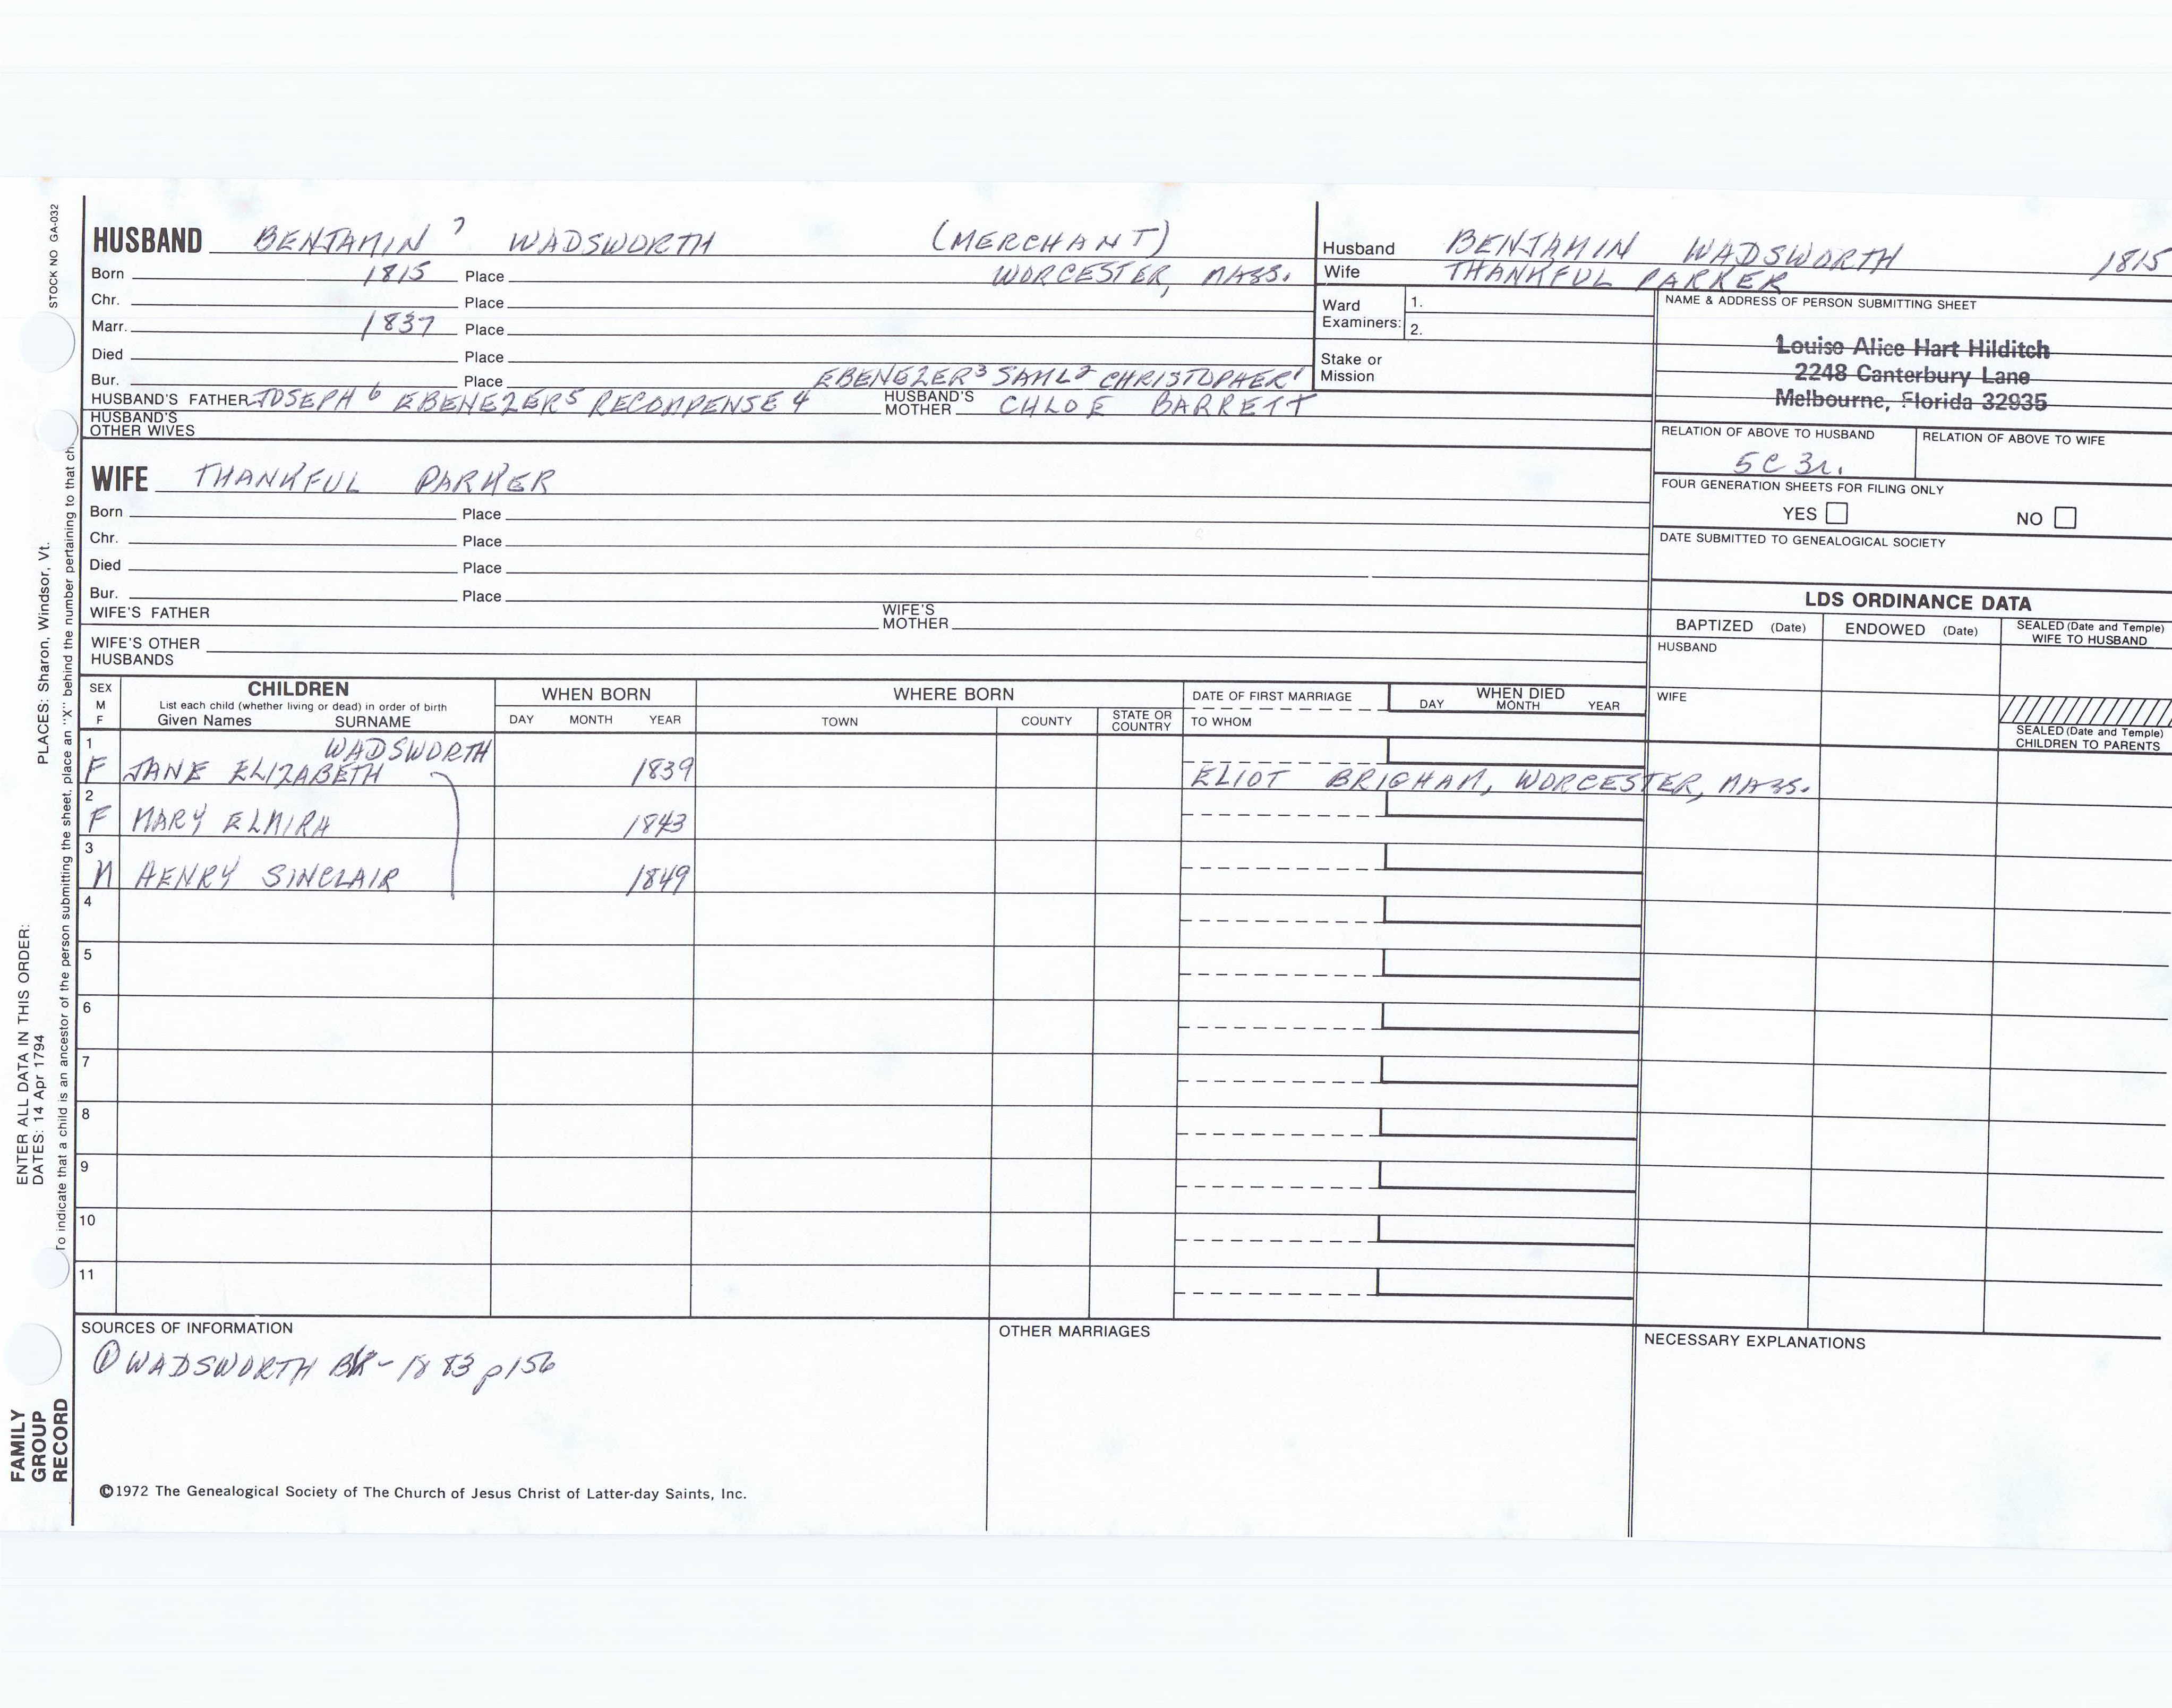 STOCK NO GA-032
PLACES: Sharon, Windsor, Vt.
ENTER ALL DATA IN THIS ORDER:
DATES: 14 Apr 1794
To indicate that a child is an ancestor of the person submitting the sheet, place an "X" behind the number pertaining to that ch
FAMILY
GROUP
RECORD
HUSBAND BENJAMIN 7 WADSWORTH (MERCHANT)
Born 1815 Place WORCESTER, MASS.
Chr. Place
Marr. 1837 Place
Died Place
Bur. Place EBENEZER3 SAML2 CHRISTOPHER1
HUSBAND'S FATHER JOSEPH 6 EBENEZER5 RECOMPENSE 4 HUSBAND'S MOTHER CHLOE BARRETT
HUSBAND'S
OTHER WIVES
WIFE THANKFUL PARKER
Born Place
Chr. Place
Died Place
Bur. Place
WIFE'S FATHER WIFE'S MOTHER
WIFE'S OTHER
HUSBANDS
Husband BENJAMIN WADSWORTH 1815
Wife THANKFUL PARKER
Ward
Examiners: 1.
2.
Stake or
Mission
NAME & ADDRESS OF PERSON SUBMITTING SHEET
Louise Alice Hart Hilditch
2248 Canterbury Lane
Melbourne, Florida 32935
RELATION OF ABOVE TO HUSBAND RELATION OF ABOVE TO WIFE
5C 3r.
FOUR GENERATION SHEETS FOR FILING ONLY
YES NO
DATE SUBMITTED TO GENEALOGICAL SOCIETY
LDS ORDINANCE DATA
BAPTIZED (Date) ENDOWED (Date) SEALED (Date and Temple) WIFE TO HUSBAND
HUSBAND
WIFE
SEALED (Date and Temple)
CHILDREN TO PARENTS
SEX
M
F
CHILDREN
List each child (whether living or dead) in order of birth
Given Names SURNAME
WHEN BORN
DAY MONTH YEAR
WHERE BORN
TOWN COUNTY STATE OR COUNTRY
DATE OF FIRST MARRIAGE
TO WHOM
WHEN DIED
DAY MONTH YEAR
1 WADSWORTH
F JANE ELIZABETH 1839 ELIOT BRIGHAM, WORCESTER, MASS.
2
F MARY ELMIRA 1843
3
M HENRY SINCLAIR 1849
4
5
6
7
8
9
10
11
SOURCES OF INFORMATION
① WADSWORTH BK - 1883 p156
OTHER MARRIAGES
NECESSARY EXPLANATIONS
©1972 The Genealogical Society of The Church of Jesus Christ of Latter-day Saints, Inc.